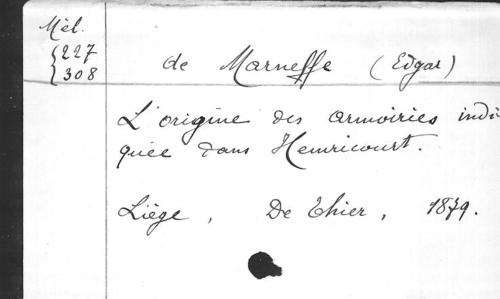 Mél.
{227
{308
de Marneffe (Edgar)
L'origine des armoiries indi
quée dans Hemricourt.
Liège, De Thier, 1879.